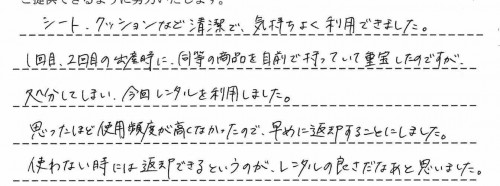 ご提供できるように努力いたします。
シート、クッションなど清潔で、気持ちよく利用できました。
1回目、2回目の出産時に、同等の商品を自前で持っていて重宝したのですが、
処分してしまい、今回レンタルを利用しました。
思ったほど使用頻度が高くなかったので、早めに返却することにしました。
使わない時には返却できるというのが、レンタルの良さだなあと思いました。